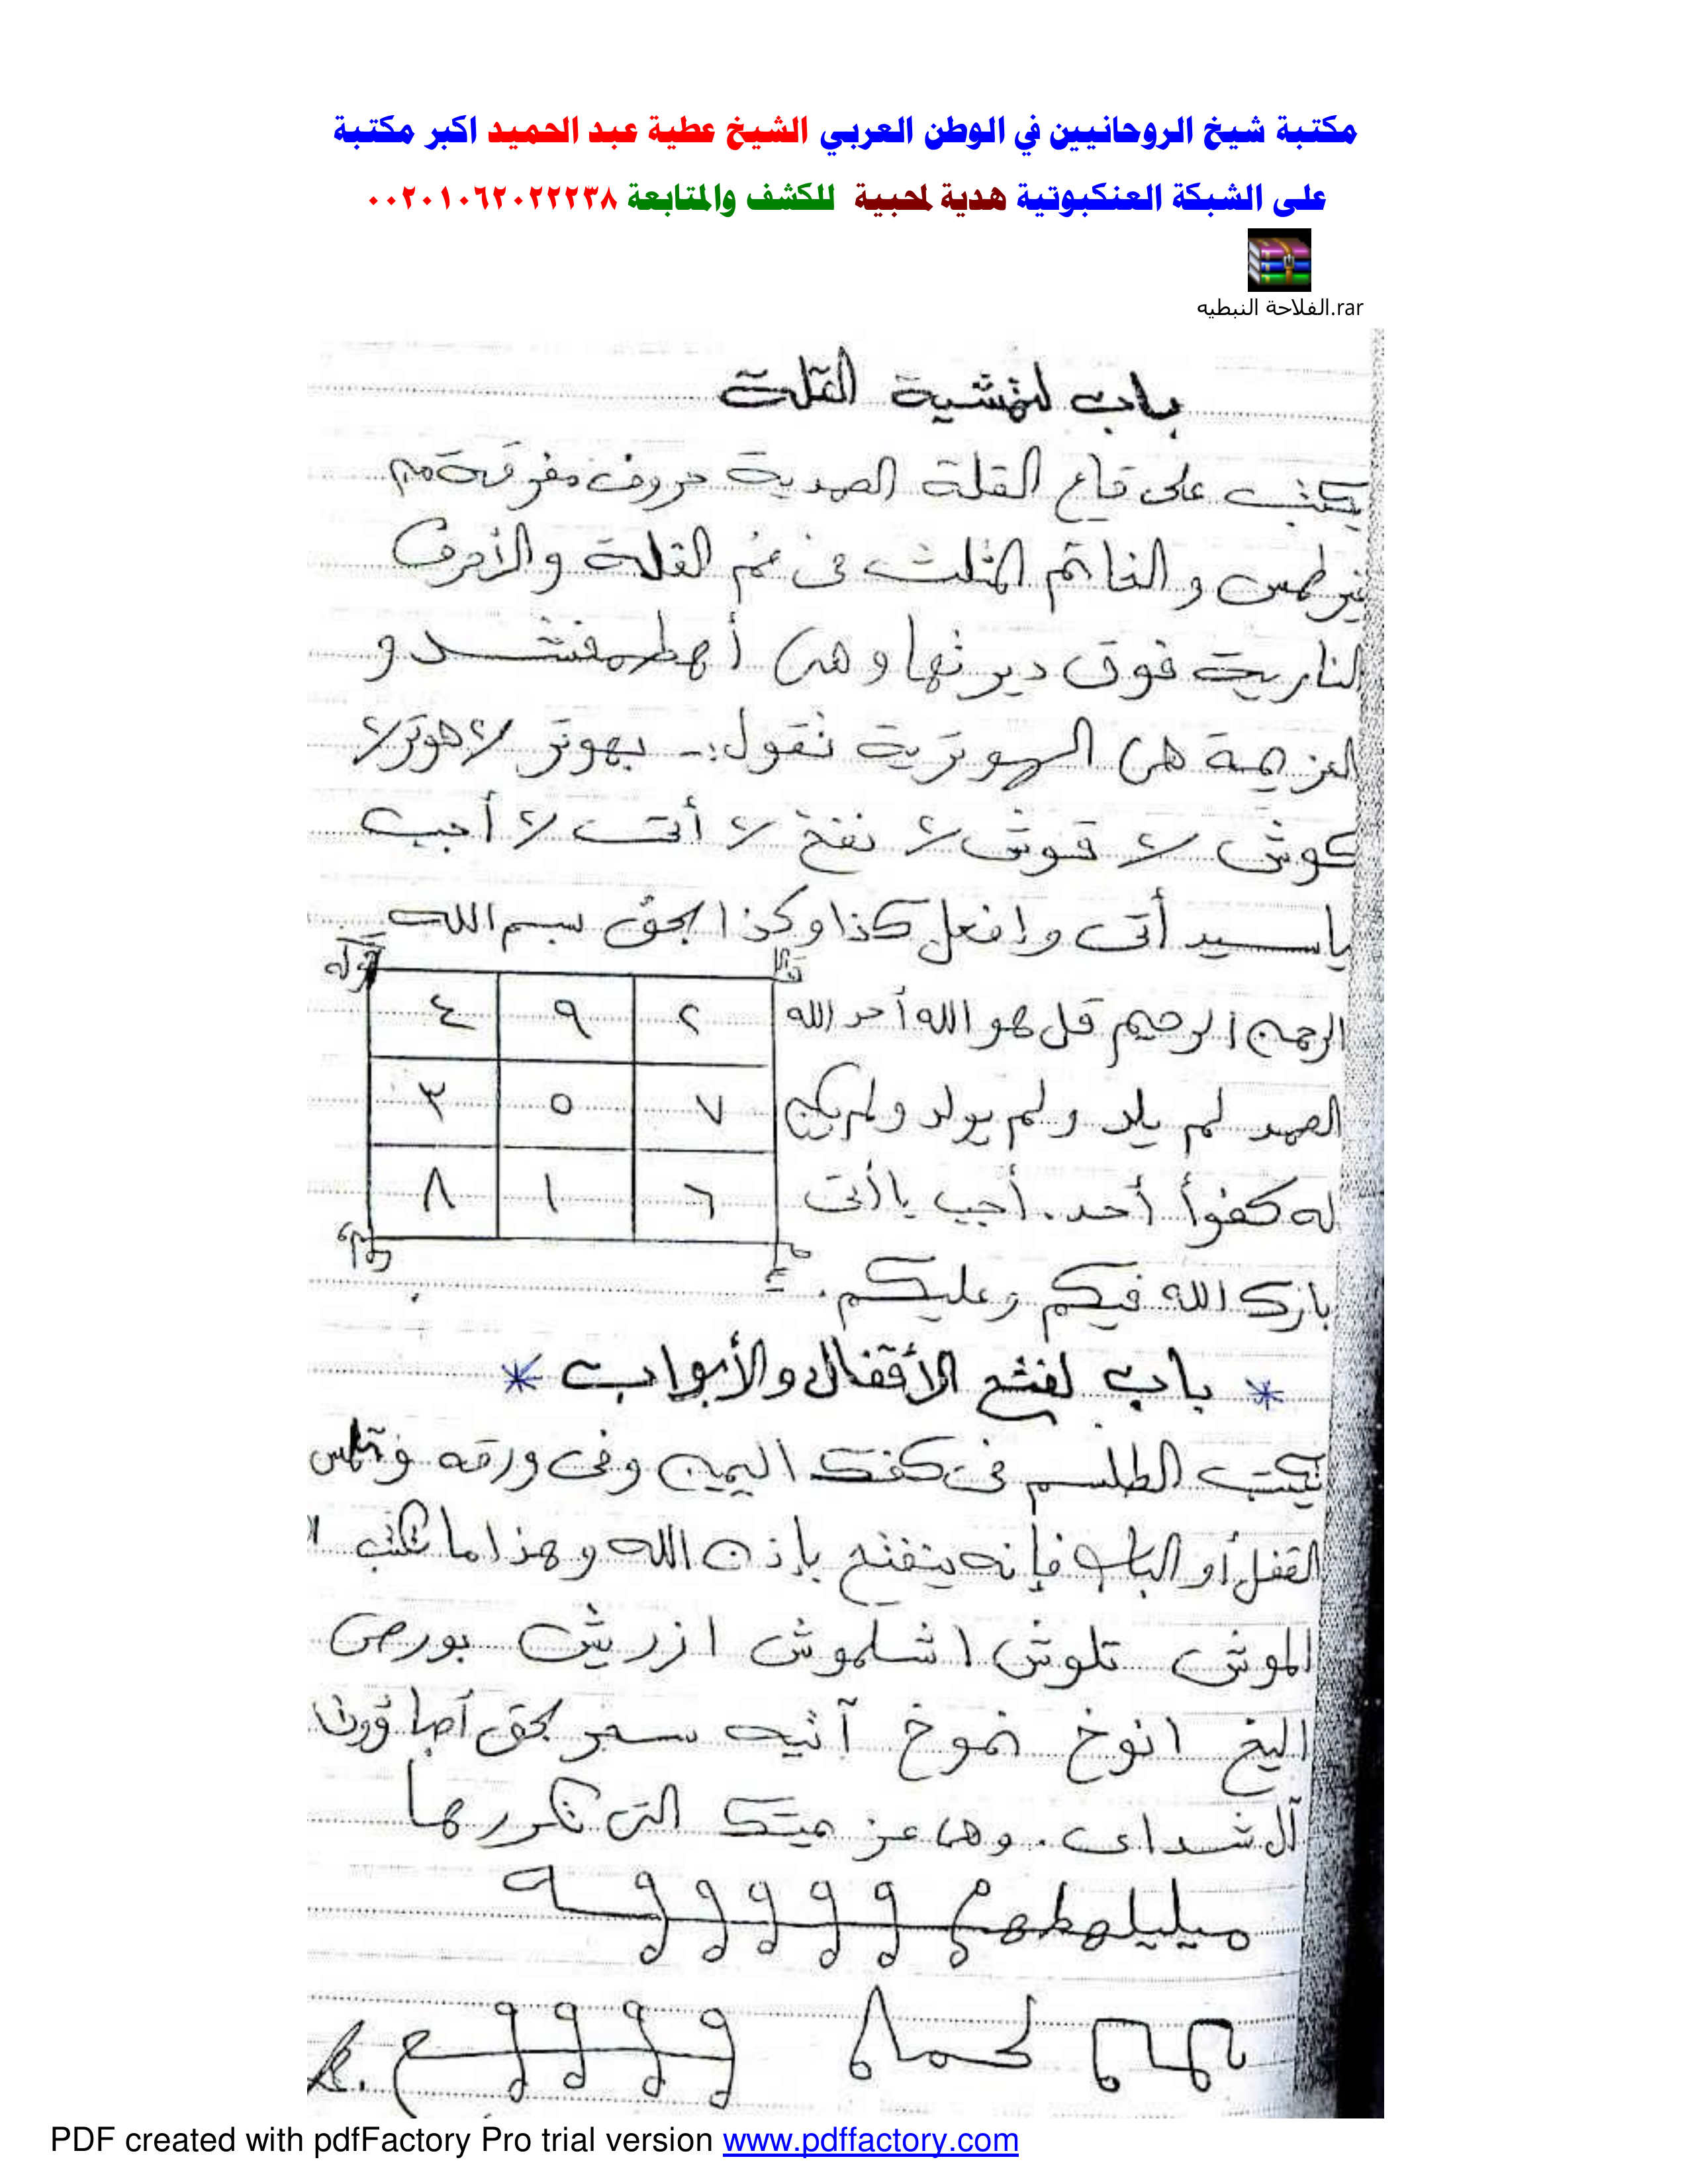 مكتبة شيخ الروحانيين في الوطن العربي الشيخ عطية عبد الحميد اكبر مكتبة
على الشبكة العنكبوتية هدية لمحبية للكشف والمتابعة ٠٠٢٠١٠٦٢٠٢٢٢٣٨
الفلاحة النبطيه.rar
باب لتمشية القلة
يكتب على قاع القلة الصمدية حروف مفرقة من
غير طمس والخاتم المثلث فى فم القلة والأحرف
النارية فوق ديرتها وهى أهطمفشد و
العزيمة هى البهوترية تقول:- بهوتر لا هوتر لا
كوش لا قوش لا نفخ لا أتى لا أجب
يا سيد أتى وإفعل كذا وكذا بحق بسم الله
الرحمن الرحيم قل هو الله أحد الله
الصمد لم يلد ولم يولد ولم يكن
له كفوأ أحد. أجب يا أتى
بارك الله فيكم وعليكم.
قوله
٢ ٩ ٤
٧ ٥ ٣
٦ ١ ٨
* باب لفتح الأقفال والأبواب *
تكتب الطلسم فى كفك اليمين وفى ورقه وتلمس
القفل أو الباب فإنه ينفتح بإذن الله وهذا ما تكتب
الموش تلوش اشلموش ازريش بورص
اليخ انوخ نموخ آتيه بحق أصباؤوت
آل شداى. وهى عزيمتك التى تكررها
PDF created with pdfFactory Pro trial version www.pdffactory.com